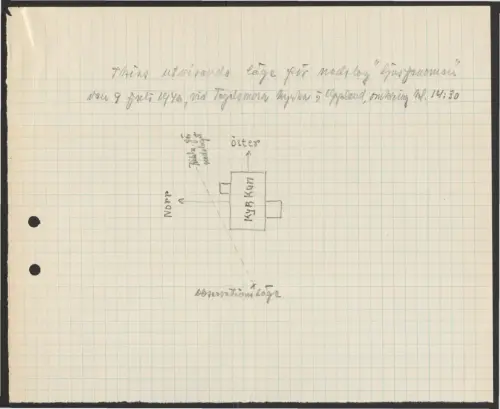 utvisande läge för nedslag "ljusfenomen"
den 9 juli 1946, vid kyrka i Uppland, omkring kl. 14:30
öster
Norr
KyRKAn
observationsläge